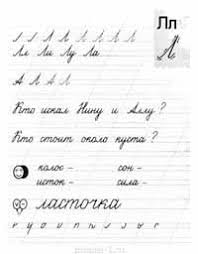 Лл
Л
Л Л Л Л Л Л Л
Лл Ли Лу Ла
А Л А Л
Кто искал Нину и Аллу?
Кто стоит около куста?
колос – сон –
исток – сила –
ласточка